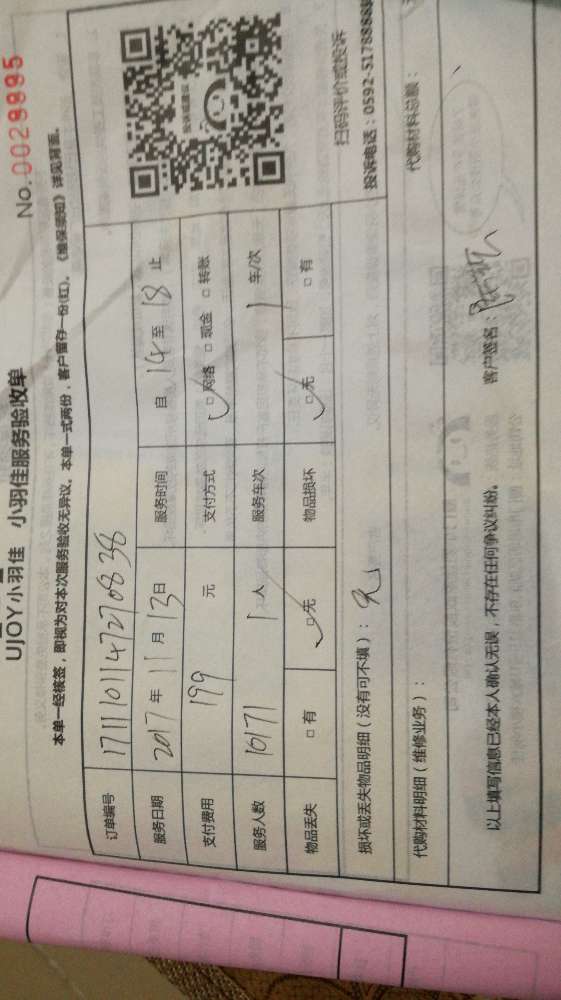 No.0029895
UJOY小羽佳 小羽佳服务验收单
本单一经核签，即视为对本次服务验收无异议。本单一式两份，客户留存一份(红)。《维保须知》详见背面。
订单编号 1711101147270838
服务日期 2017年11月13日 服务时间 自14至18止
支付费用 199元 支付方式 □网络 □现金 □转账
服务人数 10171 1人 服务车次 1车/次
物品丢失 □有 □无 物品损坏 □无 □有
扫码评价或投诉
投诉电话：0592-5178888
损坏或丢失物品明细（没有可不填）：无
代购材料明细（维修业务）： 代购材料总额：
以上填写信息已经本人确认无误，不存在任何争议纠纷。 客户签名：